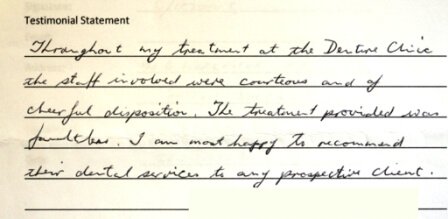 Testimonial Statement
Throughout my treatment at the Denture Clinic
the staff involved were courteous and of
cheerful disposition. The treatment provided was
faultless. I am most happy to recommend
their dental services to any prospective client.